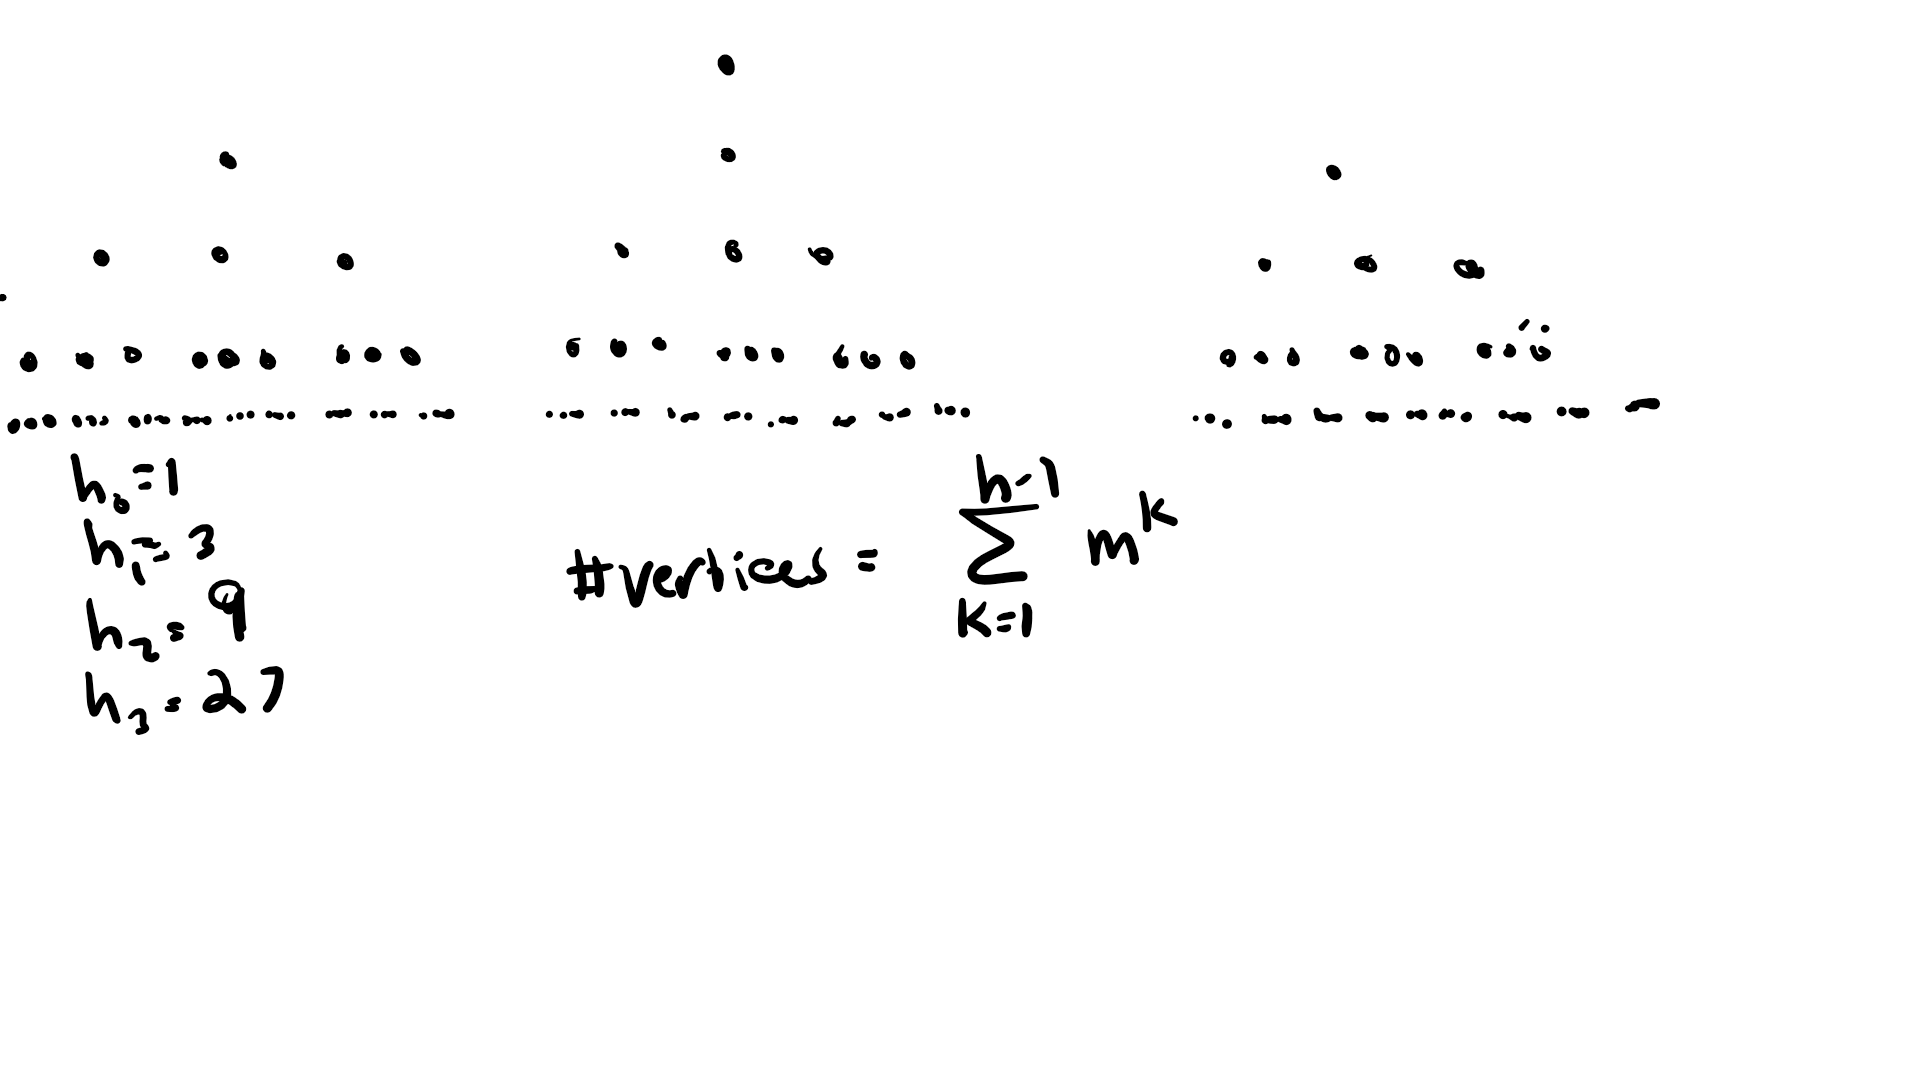 h₀=1
h₁=3
h₂=9
h₃=27
#vertices = \sum_{k=1}^{h-1} m^k